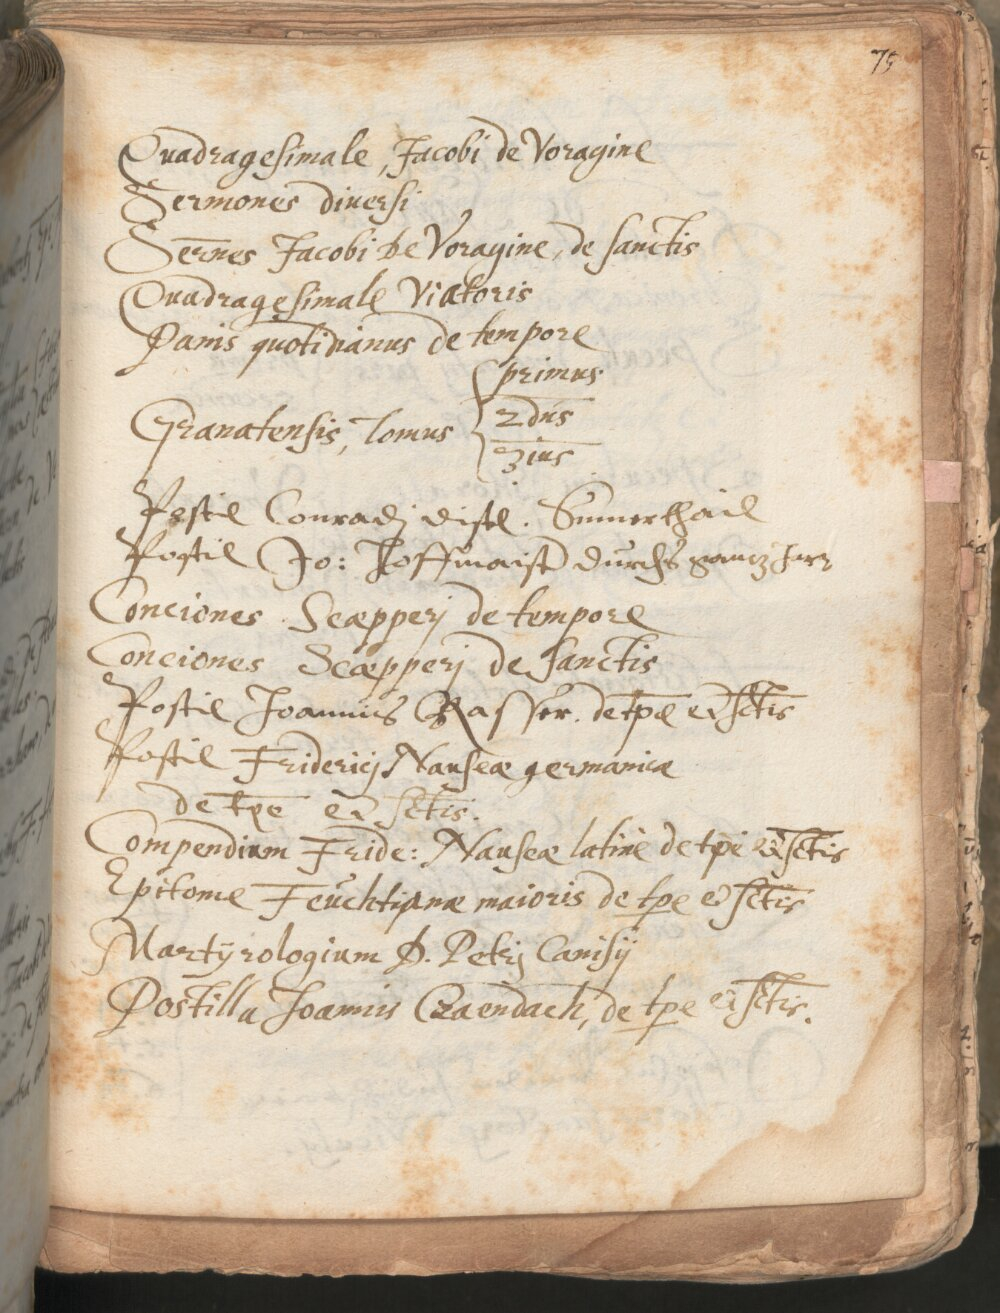 75
Quadragesimale Jacobi de Voragine
Sermones diuersi
Sermēs Jacobi de Voragine, de sanctis
Quadragesimale Viatoris
Panis quotidianus de tempore
primus
Granatensis, Tomus
2dus
3ius
Postil Conradj distl. Summerthail
Postil Jo: Hoffmaist durchs gantz Jar
Conciones Scæpperj de tempore
Conciones Scæpperj de sanctis
Postil Joannis Rasser. de tpē et sctīs
Postil Friderici Nauseæ germanica
de tpē et sctīs.
Compendium Fride: Nauseæ latinè de tpē et sctīs
Epitome Feuchtianæ maioris de tpē et sctīs
Martÿrologium D. Petrj Canisij
Postilla Joannis Craendach, de tpē et sctīs.